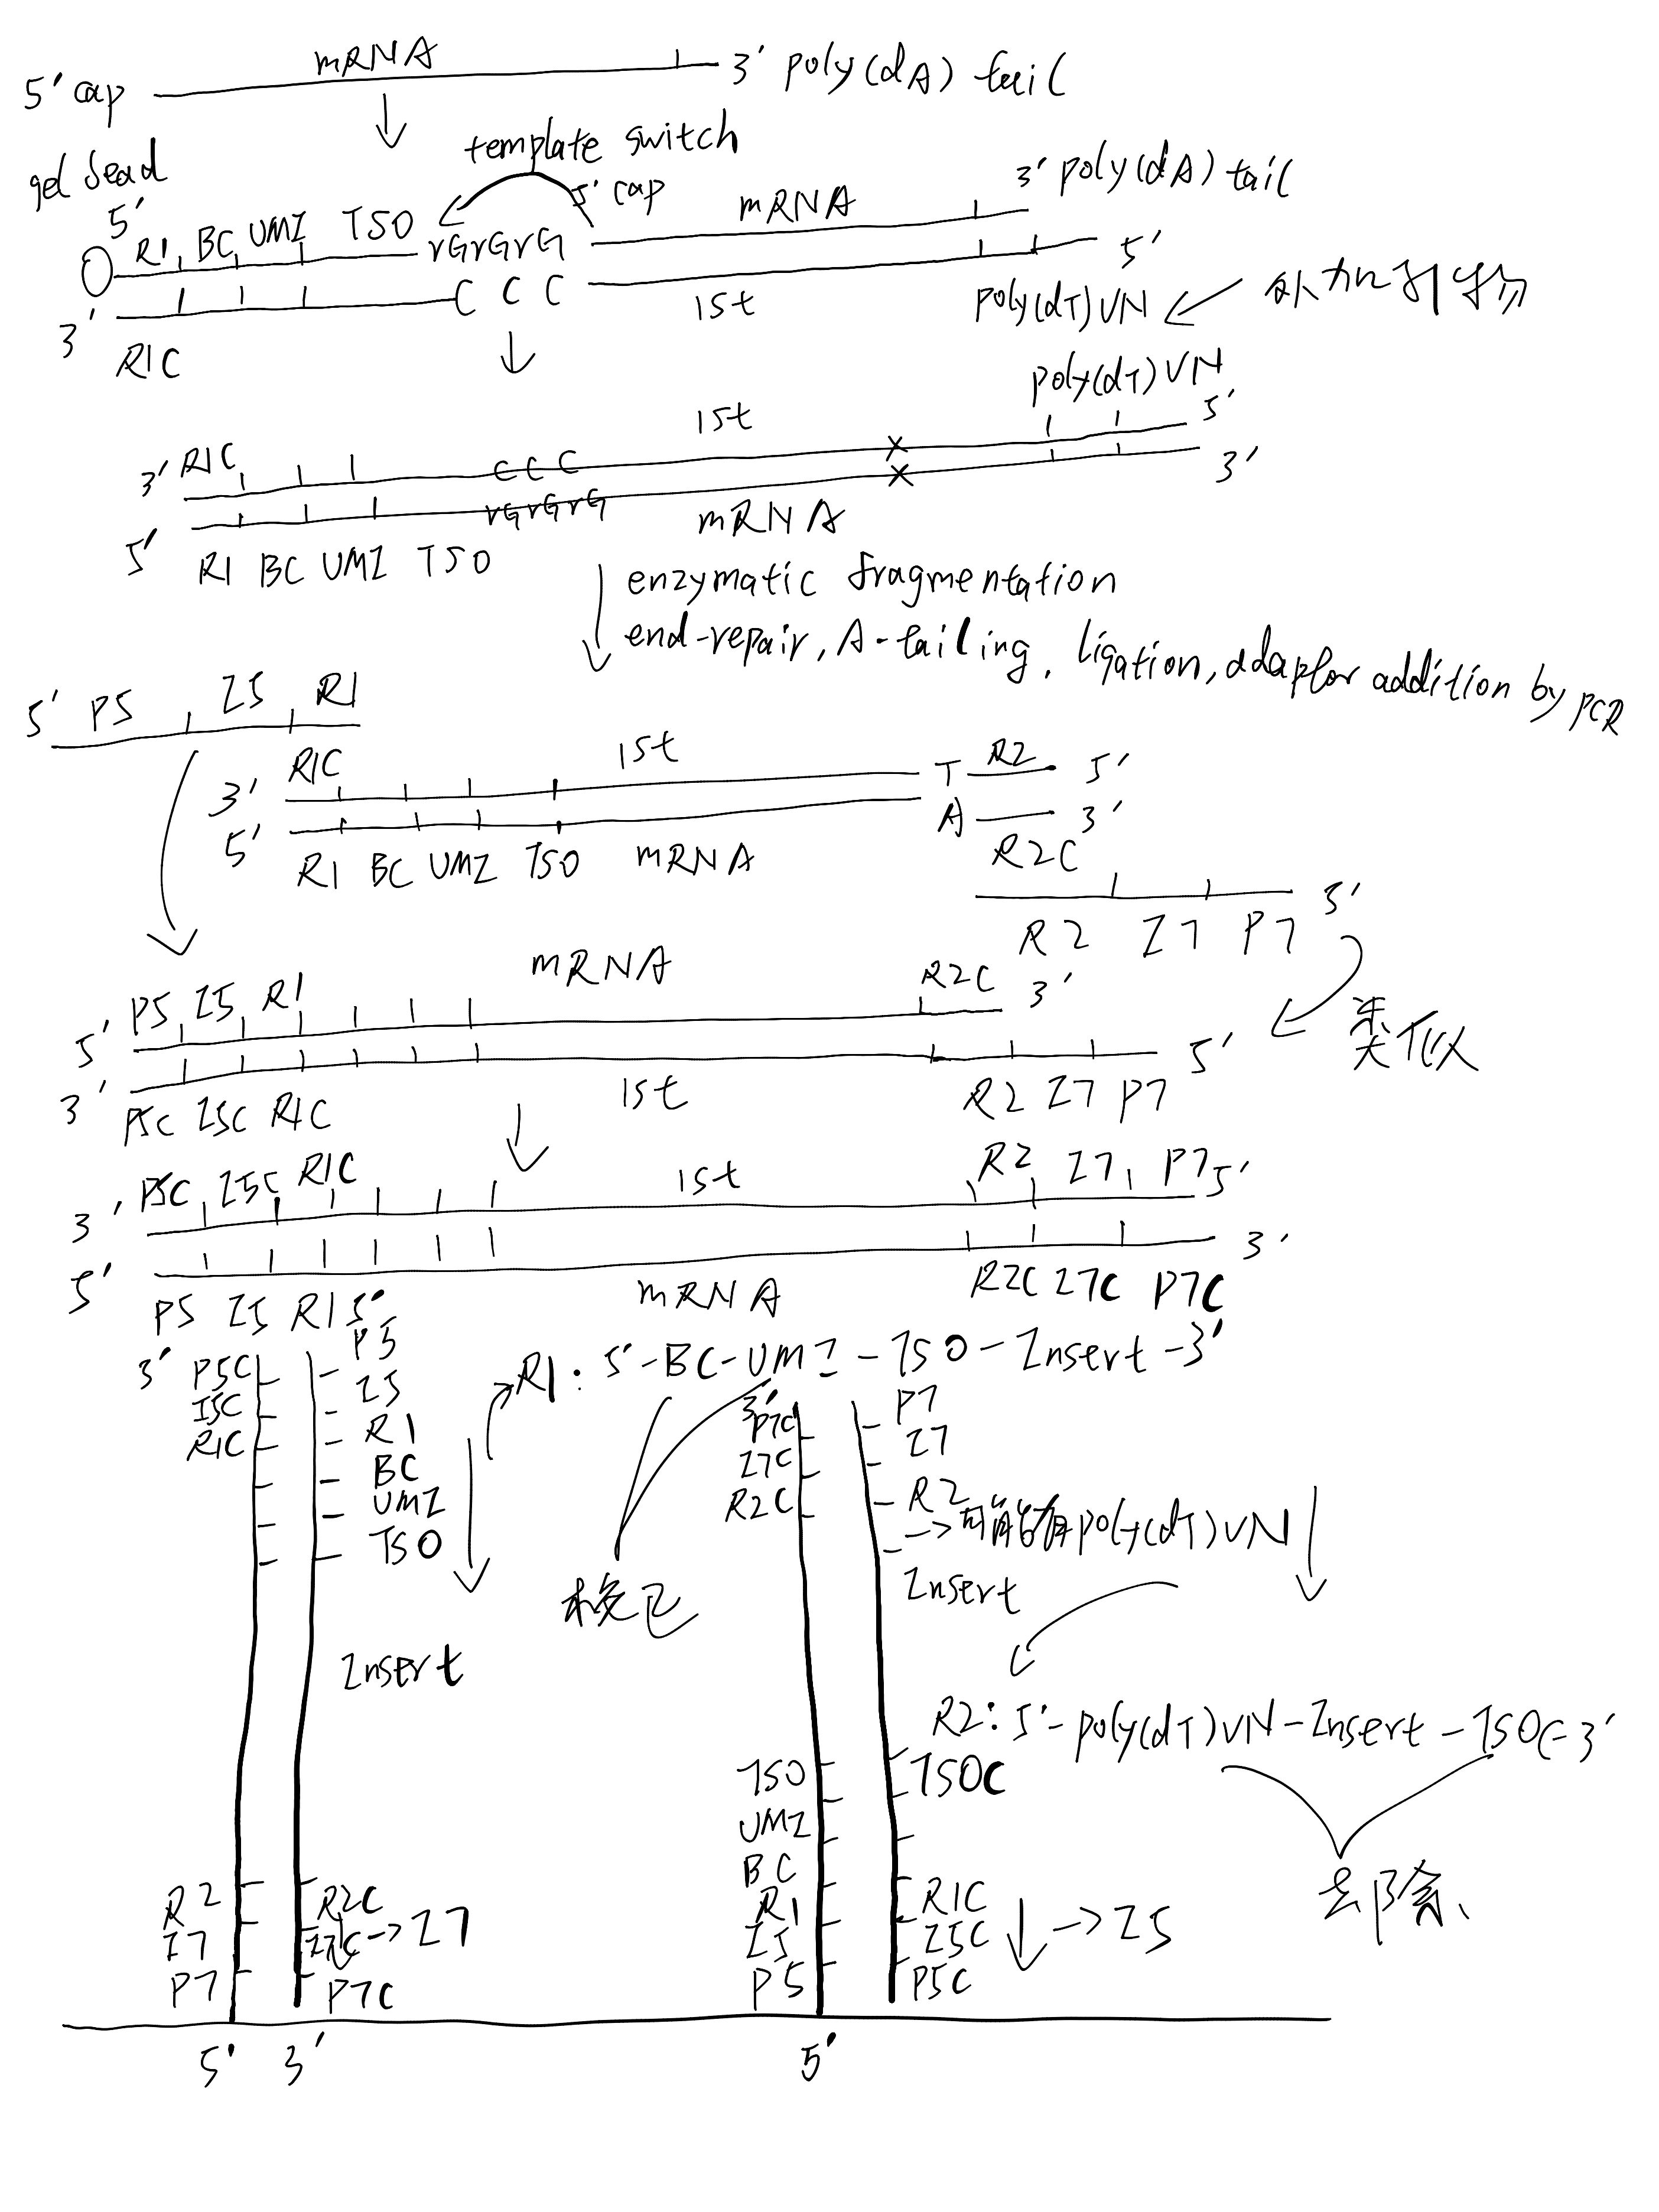 mRNA
5' cap 3' poly(dA) tail
gel bead template switch
5' 5' cap mRNA 3' poly(dA) tail
R1 BC UMI TSO rGrGrG
C C C 1st 5'
3' R1C poly(dT)VN 外加引物
1st poly(dT)VN 5'
3' R1C C C C
rGrGrG 3'
5' R1 BC UMI TSO mRNA
enzymatic fragmentation
end-repair, A-tailing, ligation, adaptor addition by PCR
5' P5 I5 R1
3' R1C 1st T R2 5'
5' A 3'
R1 BC UMI TSO mRNA R2C
R2 I7 P7 3'
mRNA
5' P5 I5 R1 R2C 3'
类似
3' 5'
P5C I5C R1C 1st R2 I7 P7
3' P5C I5C R1C 1st R2 I7 P7 5'
5' 3'
P5 I5 R1 mRNA R2C I7C P7C
5'
3' P5C P5
I5C I5
R1C R1
BC
UMI
TSO
Insert
R2 R2C
I7 I7C → I7
P7 P7C
5' 3'
R1: 5'-BC-UMI-TSO-Insert-3'
3' P7
P7C
I7C I7
R2C R2
→可能有poly(dT)VN
校正
Insert
R2: 5'-poly(dT)VN-Insert-TSOC-3'
TSO TSOC
UMI
BC
去除
R1 R1C
I5 I5C → I5
P5 P5C
5'